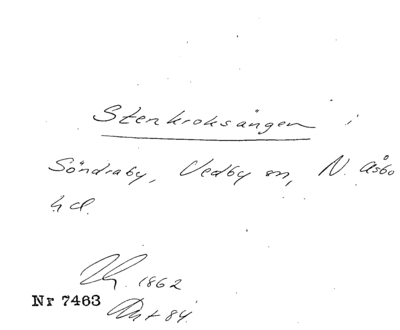 Stenkroksången i
Söndraby, Vedby sn, N. Åsbo
hd.
1862
Nr 7463